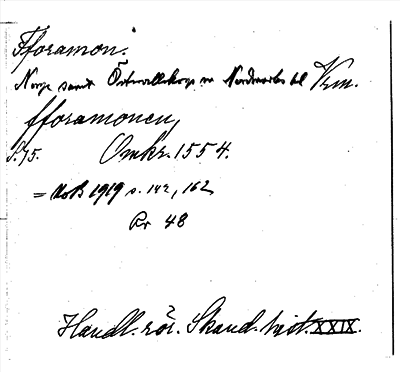 Fforamon.
Norge samt Östervallskog sn Nordmarks hd Vrm.
fforamonen,
S.75. Omkr. 1554.
= NoB 1919 s. 142, 162
Rr 48
Handl. rör. Skand. hist. XXIX.